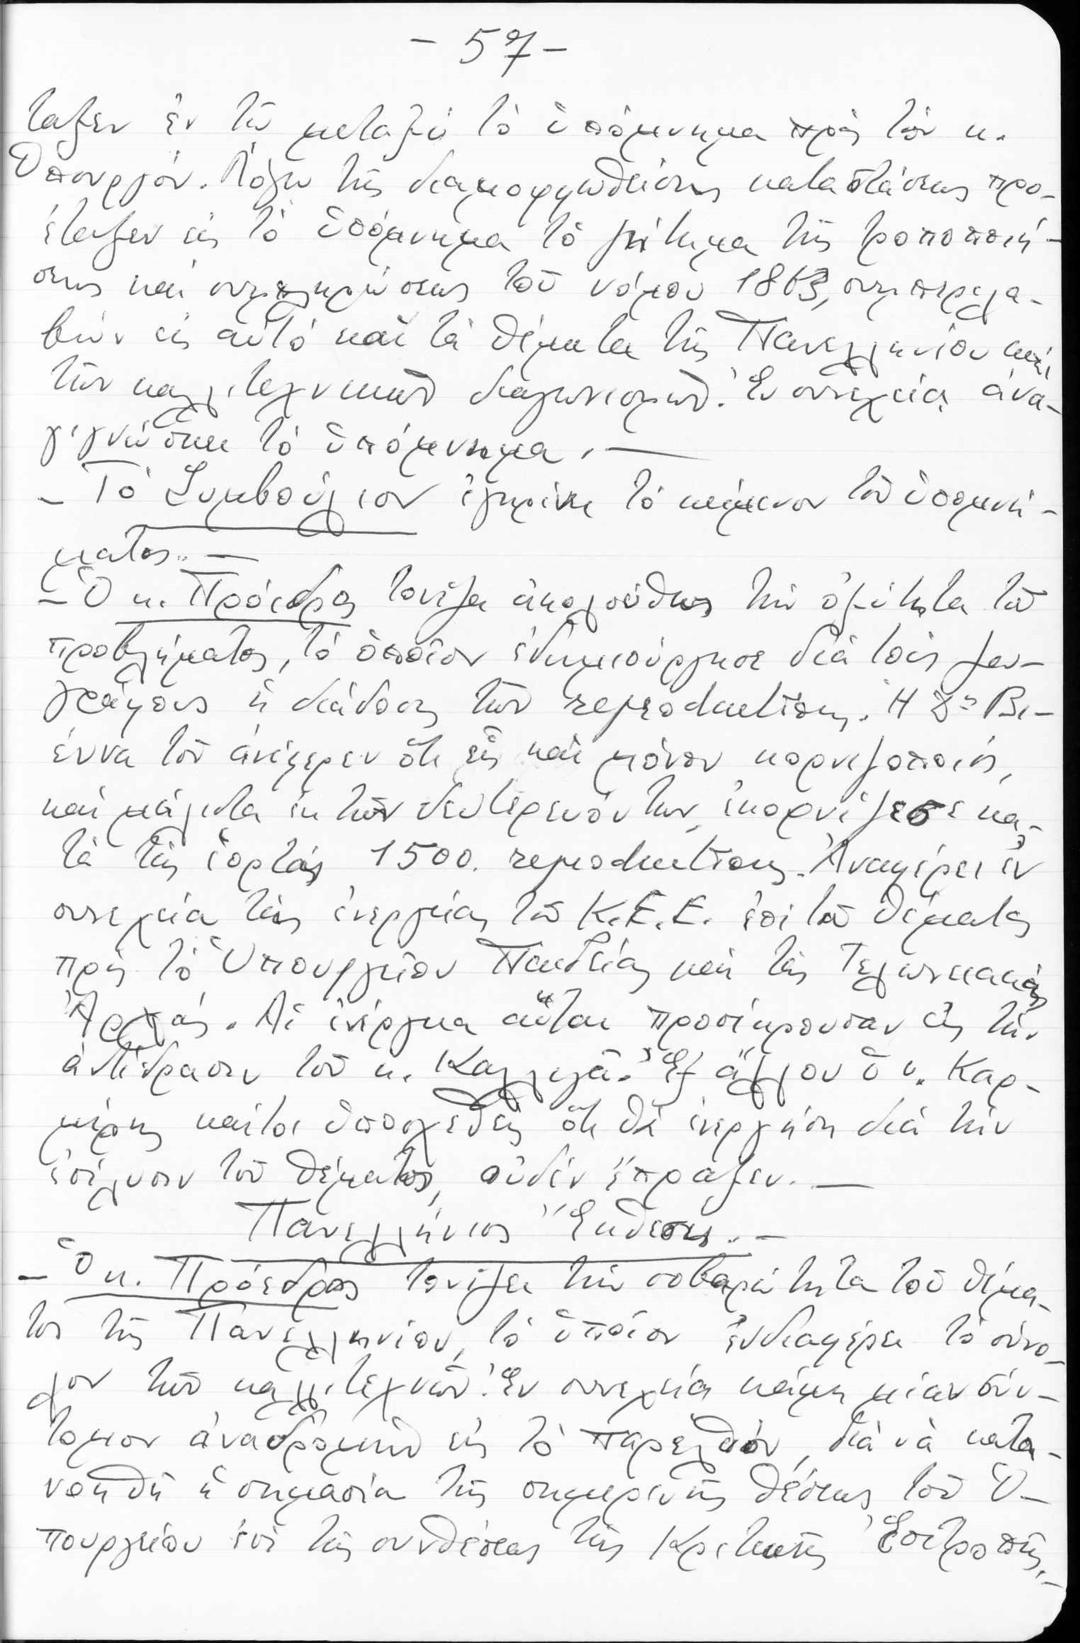 - 57 -
ταξεν ἐν τῷ μεταξύ τό ὑπόμνημα πρός τόν κ.
Ὑπουργόν. Λόγῳ τῆς διαμορφωθείσης καταστάσεως προ-
έταξεν εἰς τό ὑπόμνημα τό ζήτημα τῆς τροποποιή-
σεως καί συμπληρώσεως τοῦ νόμου 1863, συμπεριλα-
βών εἰς αὐτό καί τά θέματα τῆς Πανελληνίου καί
τῶν καλλιτεχνικῶν διαγωνισμῶν. Ἐν συνεχείᾳ ἀνα-
γιγνώσκει τό ὑπόμνημα.—
- Τό Συμβούλιον ἐγκρίνει τό κείμενον τοῦ ὑπομνή-
ματος.—
- Ὁ κ. Πρόεδρος τονίζει ἀκολούθως τήν ὀξύτητα τοῦ
προβλήματος, τό ὁποῖον ἐδημιούργησε διά τούς ζω-
γράφους ἡ διάδοσις τῶν reproductions. Ἡ Δις Βι-
έννα τοῦ ἀνέφερεν ὅτι εἷς καί μόνον κορνιζοποιός,
καί μάλιστα ἐκ τῶν δευτερευόντων, ἐκορνίζεσε κα-
τά τάς ἑορτάς 1500. reproductions. Ἀναφέρει ἐν
συνεχείᾳ τάς ἐνεργείας τοῦ Κ.Ε.Ε. ἐπί τοῦ θέματος
πρός τό Ὑπουργεῖον Παιδείας καί τάς Τελωνειακάς
Ἀρχάς. Αἱ ἐνέργειαι αὗται προσέκρουσαν εἰς τήν
ἀντίδρασιν τοῦ κ. Καλλιγᾶ. Ἐξ ἄλλου ὁ κ. Καρ-
μίρης καίτοι ὑποσχεθείς ὅτι θά ἐνεργήσῃ διά τήν
ἐπίλυσιν τοῦ θέματος, οὐδέν ἔπραξεν.—
Πανελλήνιος Ἔκθεσις.-
- Ὁ κ. Πρόεδρος τονίζει τήν σοβαρότητα τοῦ θέμα-
τος τῆς Πανελληνίου, τό ὁποῖον ἐνδιαφέρει τό σύνο-
λον τῶν καλλιτεχνῶν. Ἐν συνεχείᾳ κάμει μίαν σύν-
τομον ἀναδρομήν εἰς τό παρελθόν, διά νά κατα-
νοηθῇ ἡ σημασία τῆς σημερινῆς θέσεως τοῦ Ὑ-
πουργείου ἐπί τῆς συνθέσεως τῆς Κριτικῆς Ἐπιτροπῆς.-